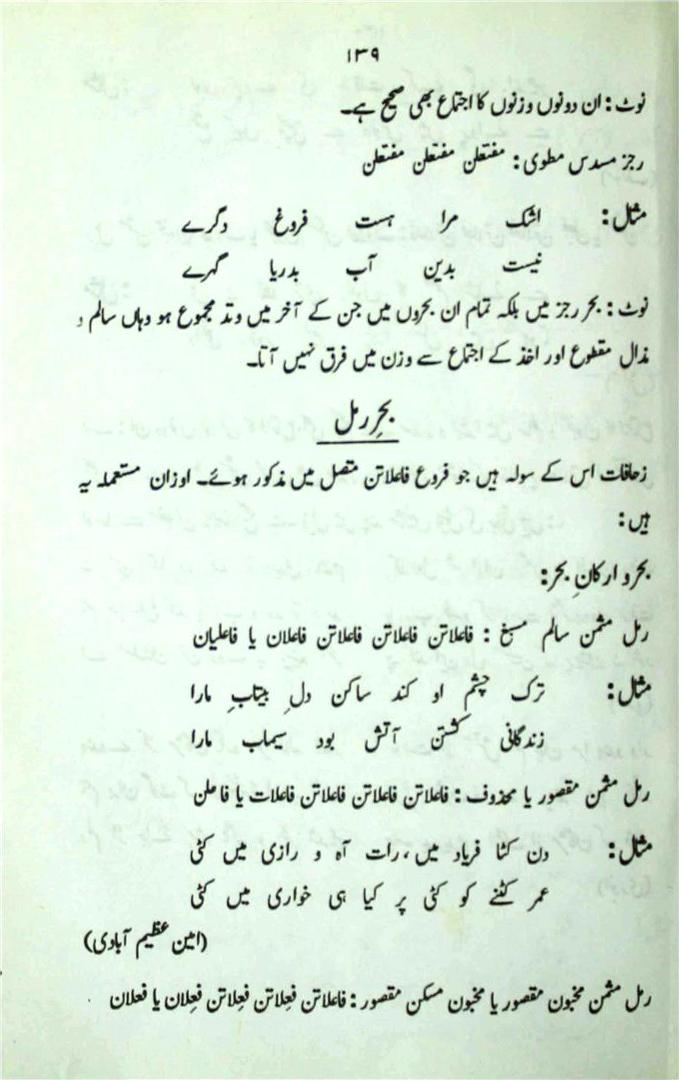 ۱۳۹
نوٹ: ان دونوں وزنوں کا اجتماع بھی صحیح ہے۔
رجز مسدس مطوی: مفتعلن مفتعلن مفتعلن
مثال: اشک مرا ہست فروغ دگرے
نیست بدین آب بدریا گہرے
نوٹ: بحر رجز میں بلکہ تمام ان بحروں میں جن کے آخر میں وتد مجموع ہو وہاں سالم و
مذال مقطوع اور اخذ کے اجتماع سے وزن میں فرق نہیں آتا۔
بحرِ رمل
زحافات اس کے سولہ ہیں جو فروع فاعلاتن متصل میں مذکور ہوئے۔ اوزان مستعملہ یہ
ہیں:
بحر و ارکانِ بحر:
رمل مثمن سالم مسبغ: فاعلاتن فاعلاتن فاعلاتن فاعلان یا فاعلیان
مثال: ترک چشم او کند ساکن دلِ بیتابِ مارا
زندگانی کشتن آتش بود سیماب مارا
رمل مثمن مقصور یا محذوف: فاعلاتن فاعلاتن فاعلاتن فاعلات یا فاعلن
مثال: دن کٹا فریاد میں، رات آہ و رازی میں کٹی
عمر کٹنے کو کٹی پر کیا ہی خواری میں کٹی
(امین عظیم آبادی)
رمل مثمن مخبون مقصور یا مخبون مسکن مقصور: فاعلاتن فعِلاتن فعِلاتن فعِلان یا فعلان